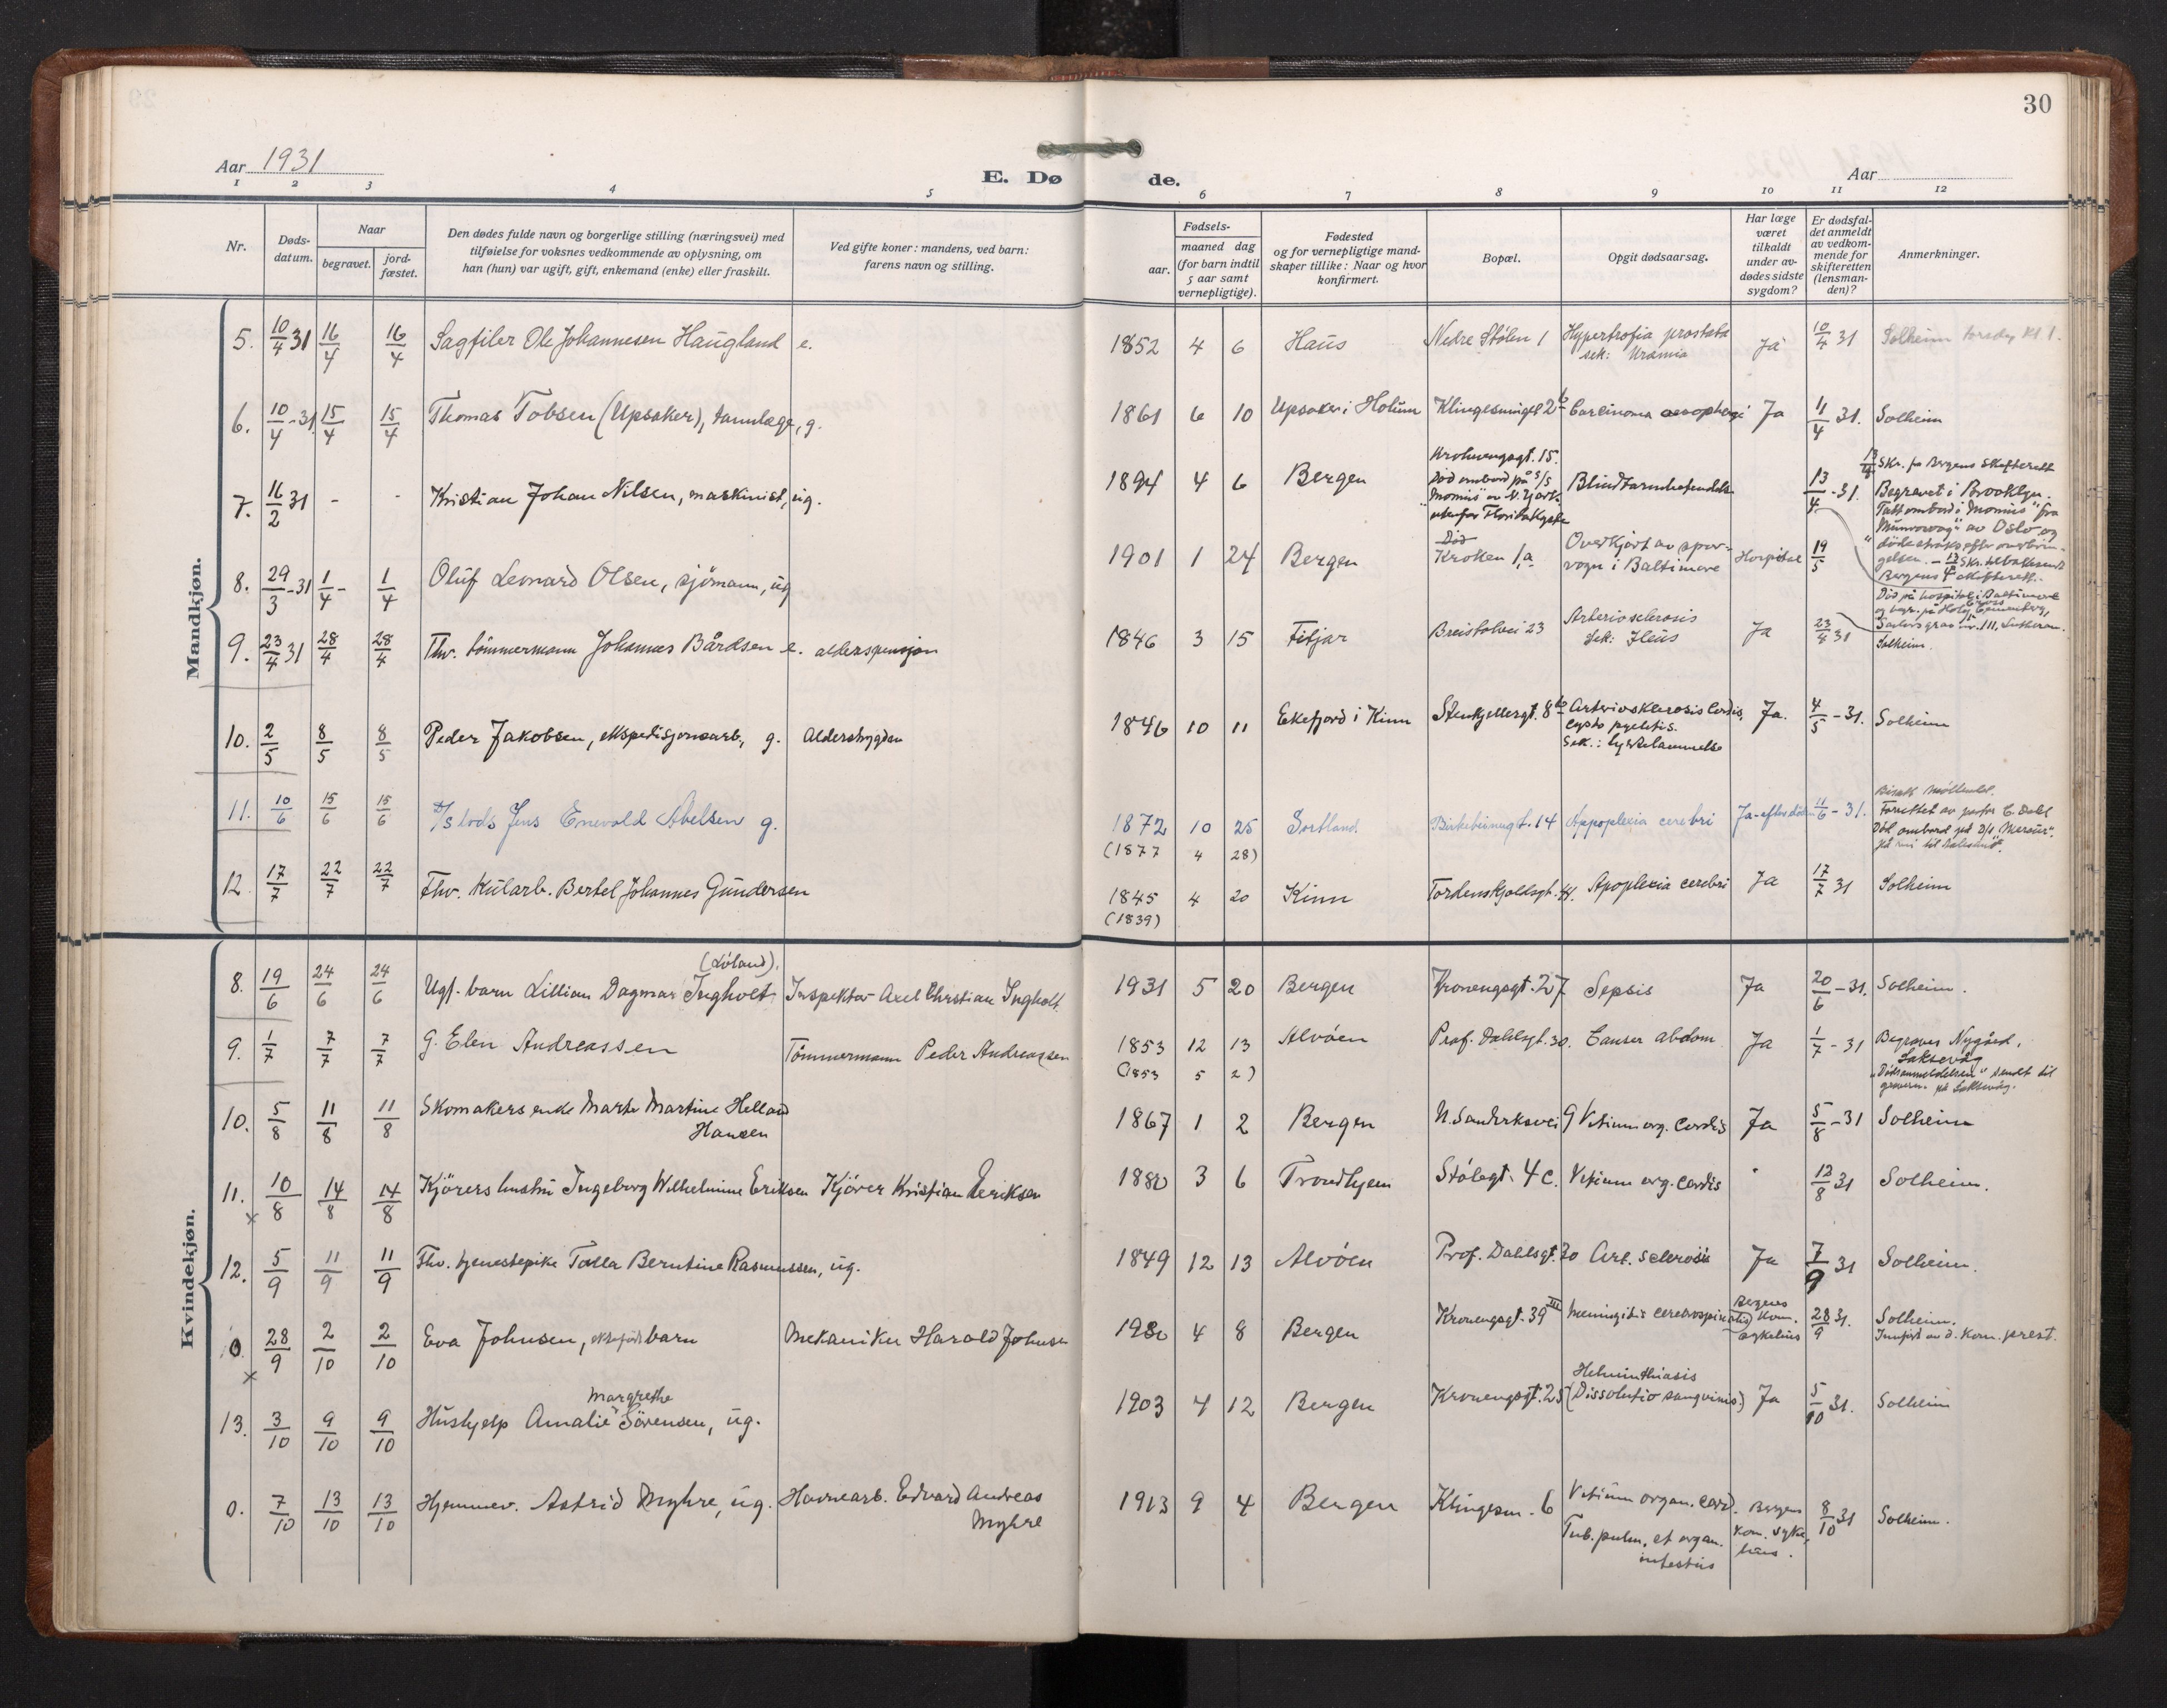 30
Aar 1931
E. Dø de.
Aar
1 2 3 4 5 6 7 8 9 10 11 12
Nr.
Døds-
datum.
Naar
begravet.
jord-
fæstet.
Den dødes fulde navn og borgerlige stilling (næringsvei) med
tilføielse for voksnes vedkommende av oplysning, om
han (hun) var ugift, gift, enkemand (enke) eller fraskilt.
Ved gifte koner: mandens, ved barn:
farens navn og stilling.
Fødsels-
aar.
maaned dag
(for barn indtil
5 aar samt
vernepligtige).
Fødested
og for vernepligtige mand-
skaper tillike: Naar og hvor
konfirmert.
Bopæl.
Opgit dødsaarsag.
Har læge
været
tilkaldt
under av-
dødes sidste
sygdom?
Er dødsfal-
det anmeldt
av vedkom-
mende for
skifteretten
(lensman-
den)?
Anmerkninger.
Mandkjøn.
5. 10/4 31 16/4 16/4 Sagfiler Ole Johannesen Haugland e. 1852 4 6 Haus Nedre Stølen 1 Hypertrofia prostata Ja 10/4 31 Solheim
sek: Uræmia
6. 10/4-31 15/4 15/4 Thomas Tobsen (Upsaker), tannlæge, g. 1861 6 10 Upsaker i Holum Klingesmuget 2b Carcinoma oesophagi Ja 11/4 31. Solheim
7. 16/2 31 - - Kristian Johan Nilsen, maskinist, ug. 1894 4 6 Bergen Krohnengsgt. 15.
Død ombord på S/S
"Momus" av N. York
utenfor Floridakysten
Blindtarmbetendelse 13/4-31.
13/4 Skr. fra Bergens Skifterett
Begravet i Brooklyn.
Tatt ombord i "Momus" fra
"Munorway" av Oslo og
døde straks efter
8. 29/3-31 1/4- 1/4 Oluf Leonard Olsen, sjømann, ug 1901 1 24 Bergen Kroken 1a Overkjørt av spor-
vogn i Baltimore Hospital 19/5
Død på hospital i Baltimore
og begr. på Holy Cross
9. 23/4 31 28/4 28/4 Fhv. tømmermann Johannes Bårdsen e. alderspensjon 1846 3 15 Fitjar Breistølvei 23 Arteriosclerosis
Sek: Ileus Ja 23/4 31 Solheim.
10. 2/5 8/5 8/5 Peder Jakobsen, ekspedisjonsarb., g. Alderstrygden 1846 10 11 Eikefjord i Kinn Stenkjellergt. 8b Arteriosklerosis Cordis, Ja. 4/5-31. Solheim
Cysto pyelitis.
Sek.:
11. 10/6 15/6 15/6 D/s lods Jens Enevold Abelsen g. 1872 10 25 Sortland. Birkebeinergt. 14 Appoplexia cerebri Ja-efter døden 11/6-31.
(1877 4 28)
Bisatt Møllendal.
Forrettet av pastor C. Dahl
Død ombord på D/S "Mercur".
12 17/7 22/7 22/7 Fhv. Kularb. Bertel Johannes Gundersen 1845 4 20 Kinn Tordenskjoldsgt. Apoplexia cerebri Ja 17/7 31 Solheim
(1839)
Kvindekjøn.
8. 19/6 24/6 24/6 Ugf. barn Lillian Dagmar Ingholt (Løland). Inspektør Axel Christian Ingholt 1931 5 20 Bergen Kronengsgt. 27 Sepsis Ja 20/6-31. Solheim.
9. 1/7 7/7 7/7 G. Elen Andreassen Tømmermann Peder Andreassen 1853 12 13 Alvøen Prof. Dahlsgt. 30. Canser abdom Ja 1/7-31 Begraves Nygård,
(1853 5 2)
Laksevåg
"Dødsanmeldelsen" sendt til
graveren på Laksevåg.
10. 5/8 11/8 11/8 Skomakers enke Marte Martine Helland
Hansen 1867 1 2 Bergen N. Sandviksvei 9 Vitium org. cordis Ja 5/8-31 Solheim
11. 10/8 14/8 14/8 Kjørers hustru Ingeborg Wilhelmine Eriksen Kjører Kristian Eeriksen 1880 3 6 Trondhjem Stølegt. 4c. Vitium org. cordis " 12/8 31 Solheim.
x
12. 5/9 11/9 11/9 Fhv. tjenestepike Talla Berntine Rasmussen, ug. 1849 12 13 Alvøen Prof. Dahlsgt. 30 Art. sclerosis Ja 7/9 31 Solheim.
0. 28/9 2/10 2/10 Eva Johnsen, barn Mekaniker Harald Johnsen 1930 4 8 Bergen Kronengsgt. 39 III Meningitis cerebrospinalis Bergens
Kom.
sykehus 28/9 31. Solheim.
Innført av d. Kom. prest.
x
13. 3/10 9/10 9/10 Hushjelp Amalie Margrethe Sørensen, ug. 1903 4 12 Bergen Kronengsgt. 25 Helminthiasis
(Dissolutio sangvinis) Ja 5/10 31. Solheim
0. 7/10 13/10 13/10 Hjemmev. Astrid Myhre, ug. Havnearb. Edvard Andreas
Myhre 1913 9 4 Bergen Klingesm. 6 Vitium organ. cord.
Tub. pulm. et organ.
intestin Bergens
kom. syke-
hus. 8/10 31 Solheim.